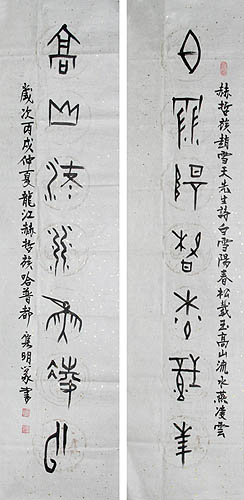 赫哲族趙雪天先生詩白雪陽春松載玉高山流水燕凌雲
白雪陽春松載玉
高山流水燕凌雲
歲次丙戌仲夏龍江赫哲族哈普都雋明篆書